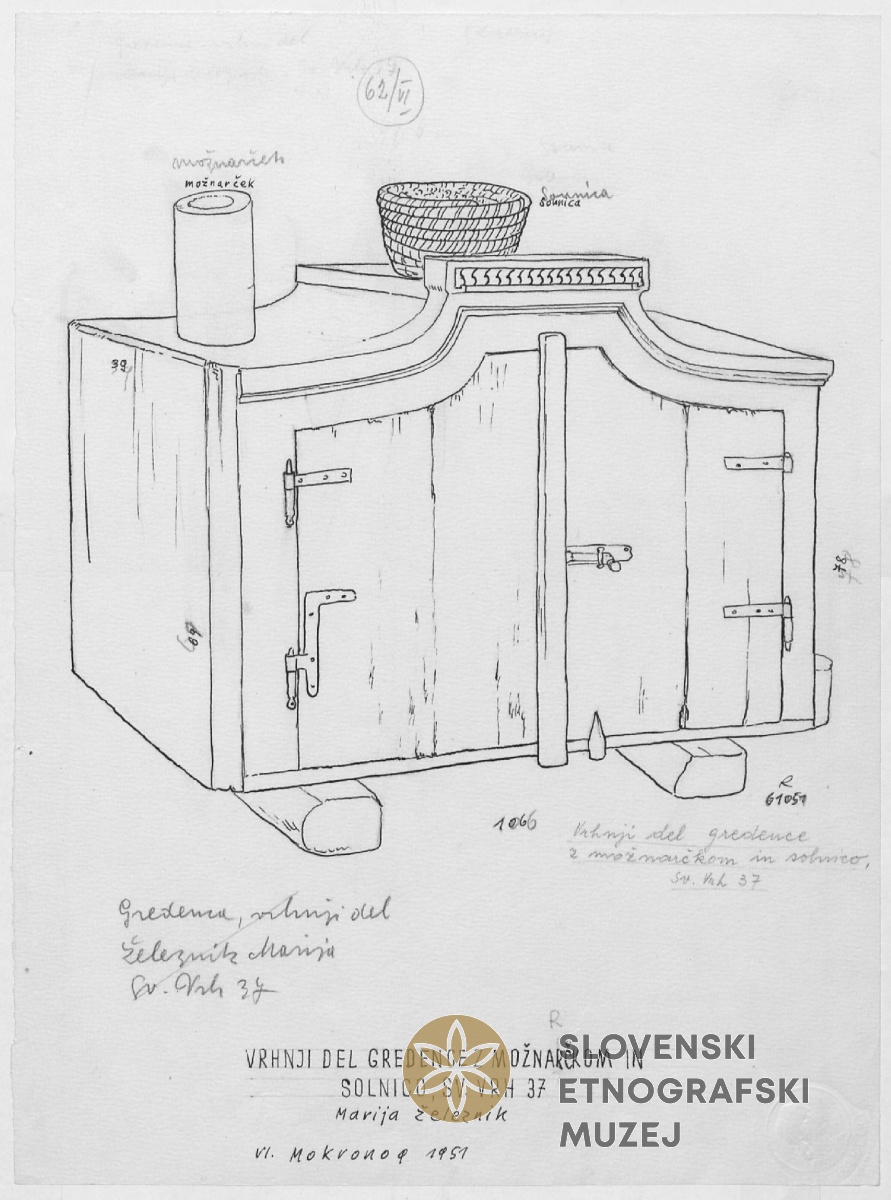 62/VI
možnarček
možnarček
Solnica
solnica
39
69
78
R
61051
106
Vrhnji del gredence
z možnarčkom in solnico,
Sv. Vrh 37
Gredenca, vrhnji del
Železnik Marija
Sv. Vrh 37
R
VRHNJI DEL GREDENCE Z MOŽNARČKOM IN
SOLNICO, SV. VRH 37
Marija Železnik
VI. Mokronog 1951
SLOVENSKI
ETNOGRAFSKI
MUZEJ